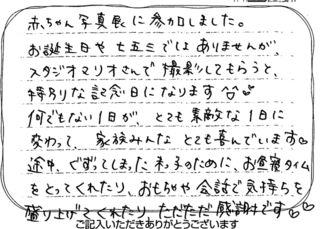 赤ちゃん写真展に参加しました。
お誕生日や七五三ではありませんが、
スタジオマリオさんで撮影してもらうと、
特別な記念日になります
何でもない1日が、とても素敵な1日に
変わって、家族みんなとても喜んでいます♡
途中、ぐずってしまった末っ子のために、お昼寝タイム
をとってくれたり、おもちゃや会話で気持ちを
盛り上げてくれたり、ただただ感謝です♡♡
ご記入いただきありがとうございます